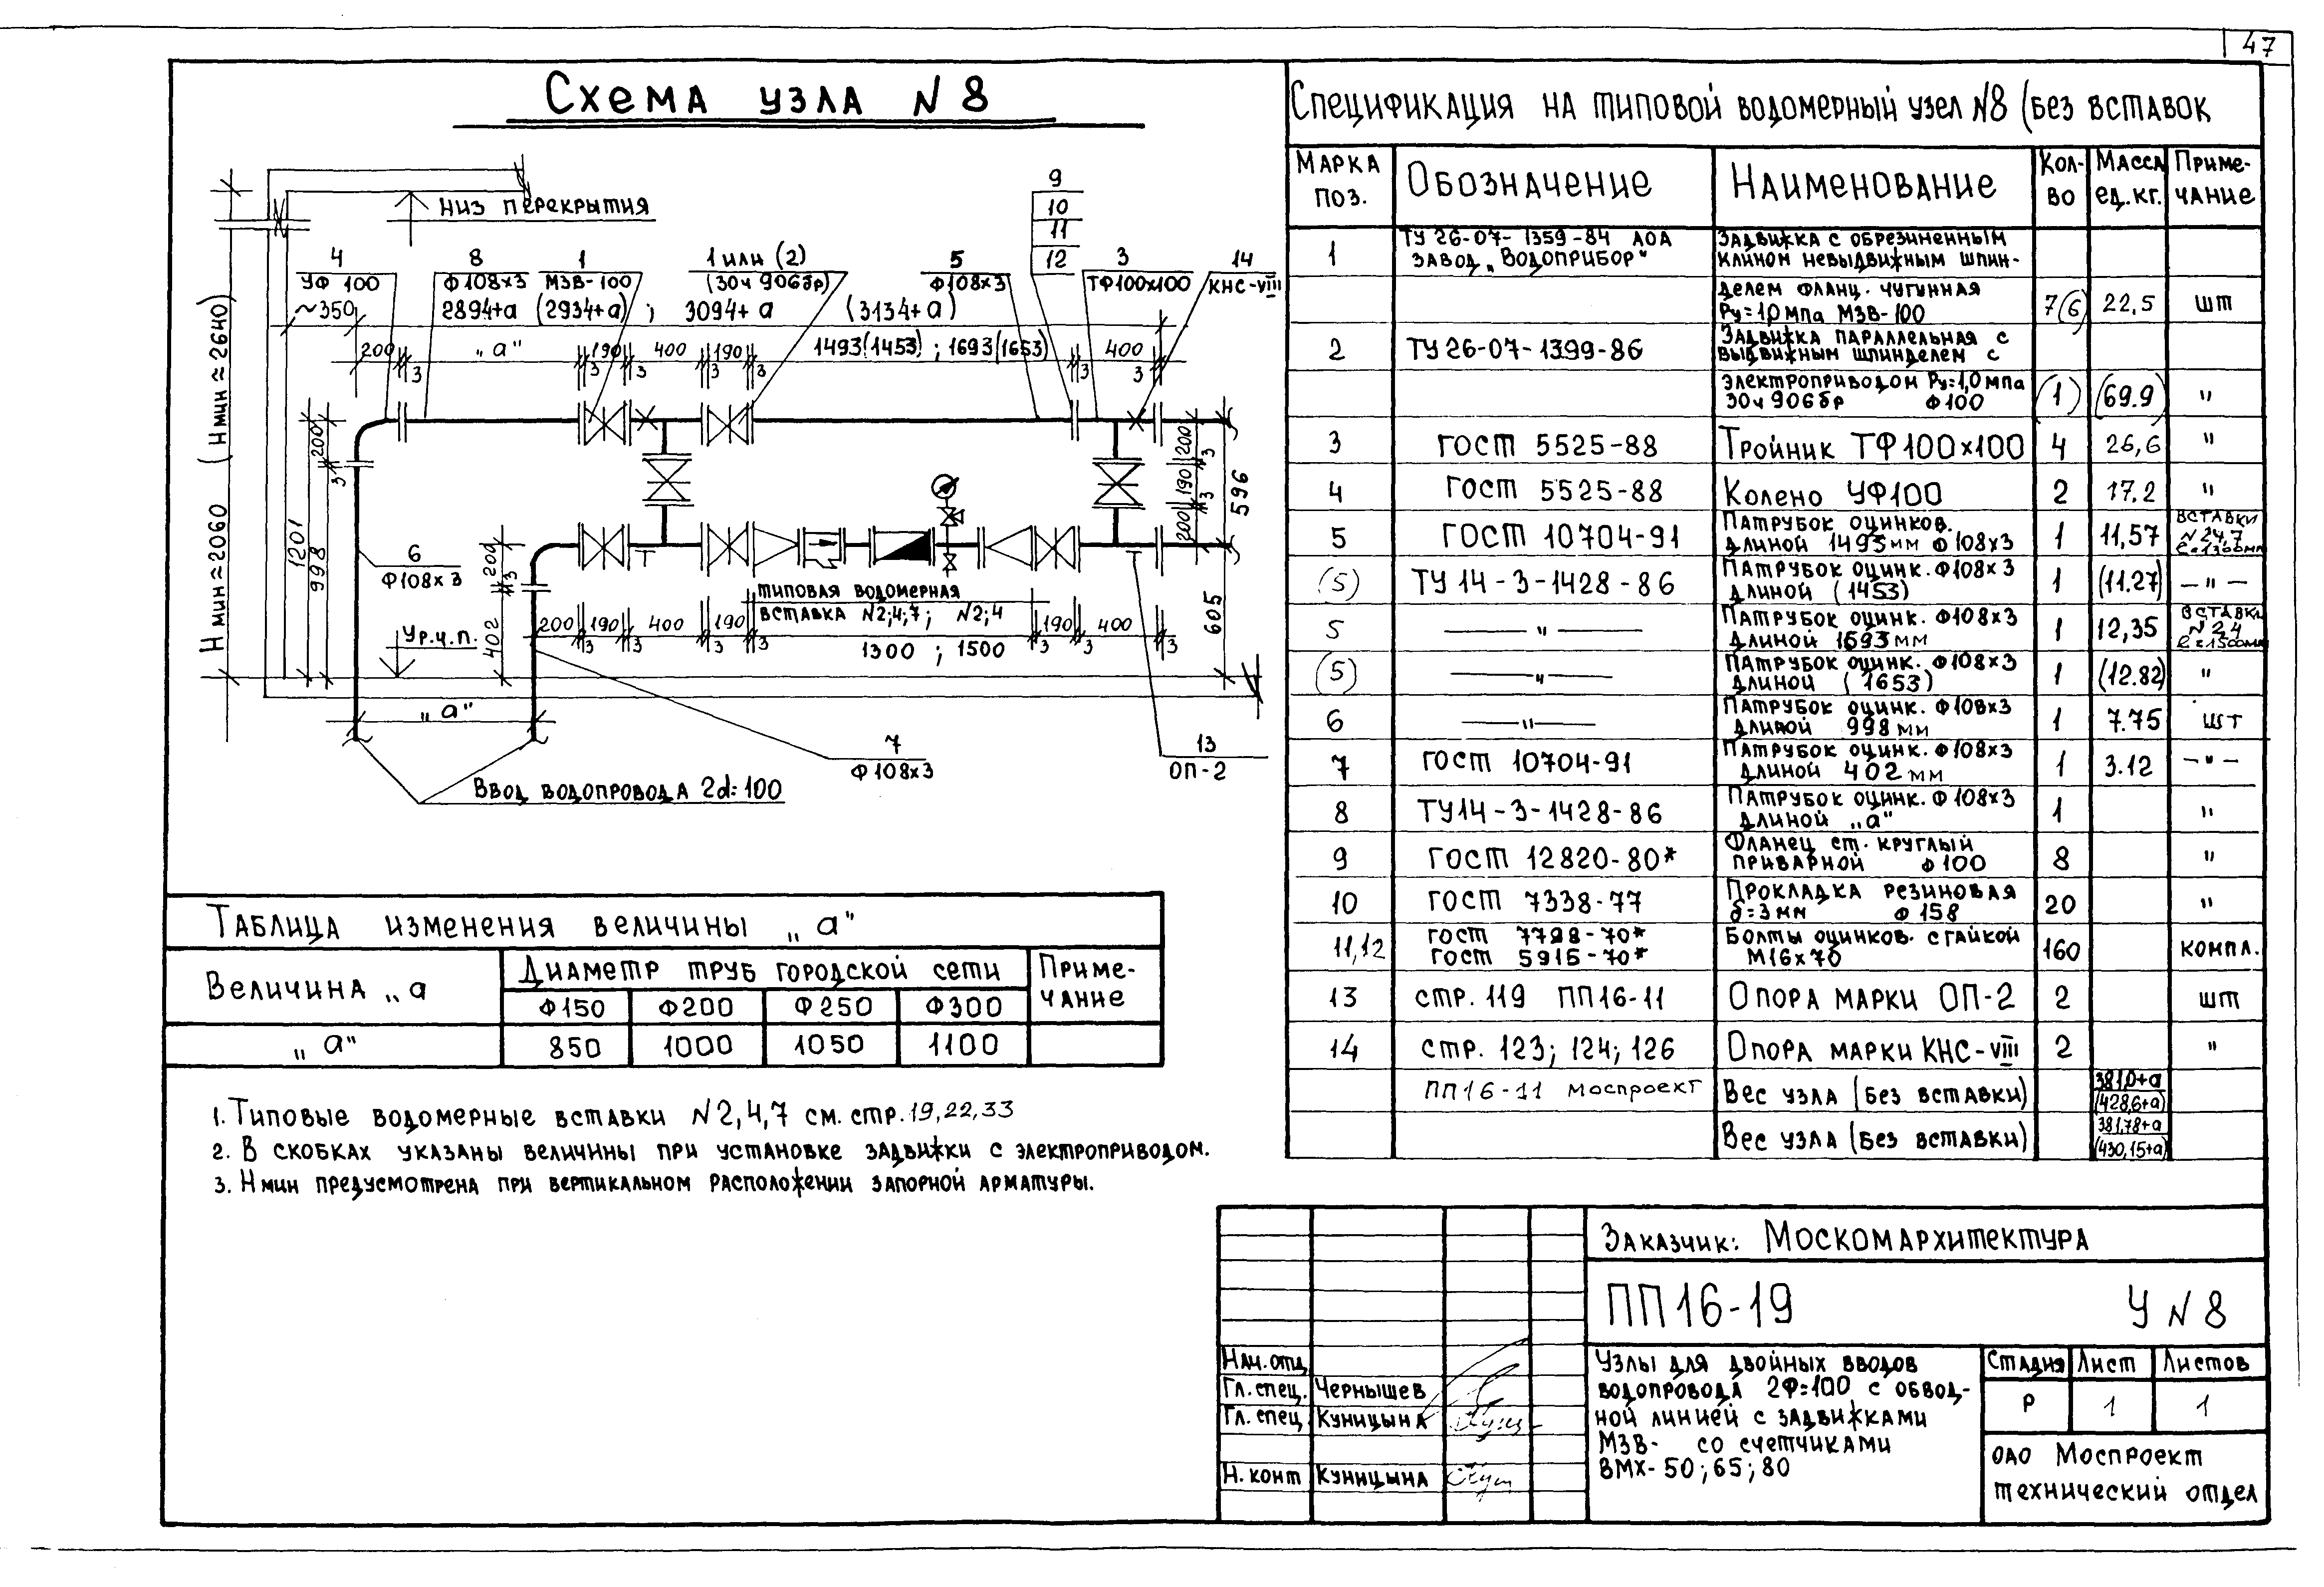 47
Схема узла N 8
Низ перекрытия
4
УФ 100
8
Ф108х3
1
МЗВ-100
1 или (2)
(30ч 906бр)
5
Ф108х3
9
10
11
12
3
ТФ100х100
14
КНС-VIII
~350
2894+а (2934+а) ; 3094+а (3134+а)
200 3 „а" 3 190 3 400 3 190 3 1493(1453) ; 1693(1653) 3 400 3
Hмин≈2060 (Hмин≈2640)
1201
998
200
3
6
Ф108х3
Ур.ч.п.
402
200
3
200 3 190 3 400 3 190 3
типовая водомерная
вставка N2;4;7; N2;4
1300 ; 1500
3 190 3 400 3
200 3 190 3 200
596
605
„а"
7
Ф108х3
13
ОП-2
Ввод водопровода 2d=100
Таблица изменения величины „а"
Величина „а
Диаметр труб городской сети
Приме-
чание
Ф150 Ф200 Ф250 Ф300
„а" 850 1000 1050 1100
1. Типовые водомерные вставки N2,4,7 см. стр. 19,22,33
2. В скобках указаны величины при установке задвижки с электроприводом.
3. Нмин предусмотрена при вертикальном расположении запорной арматуры.
Спецификация на типовой водомерный узел N8 (без вставок
Марка Обозначение Наименование Кол- Масса Приме-
поз. во ед.кг. чание
1 ТУ 26-07-1359-84 АОА Задвижка с обрезиненным
завод „Водоприбор" клином невыдвижным шпин-
делем фланц. чугунная 7(6) 22,5 шт
Ру=1,0мпа МЗВ-100
2 ТУ 26-07-1399-86 Задвижка параллельная с
выдвижным шпинделем с
электроприводом Ру=1,0мпа (1) (69.9) "
30ч906бр Ф100
3 ГОСТ 5525-88 Тройник ТФ100х100 4 26,6 "
4 ГОСТ 5525-88 Колено УФ100 2 17.2 "
5 ГОСТ 10704-91 Патрубок оцинков. 1 11,57 вставки
длиной 1493мм Ф108х3 N2,4,7
ℓ=1300мм
(5) ТУ 14-3-1428-86 Патрубок оцинк. Ф108х3 1 (11.27) — " —
длиной (1453)
5 — " — Патрубок оцинк. Ф108х3 1 12,35 вставки
длиной 1693мм N2,4
ℓ=1500мм
(5) — " — Патрубок оцинк. Ф108х3 1 (12.82) "
длиной (1653)
6 — " — Патрубок оцинк. Ф108х3 1 7.75 шт
длиной 998мм
7 ГОСТ 10704-91 Патрубок оцинк. Ф108х3 1 3.12 — " —
длиной 402мм
8 ТУ14-3-1428-86 Патрубок оцинк. Ф108х3 1 "
длиной „а"
9 ГОСТ 12820-80* Фланец ст. круглый 8 "
приварной Ф100
10 ГОСТ 7338-77 Прокладка резиновая 20 "
δ=3мм Ф158
11,12 ГОСТ 7798-70* Болты оцинков. с гайкой 160 компл.
ГОСТ 5915-70* М16х70
13 стр. 119 ПП16-11 Опора марки ОП-2 2 шт
14 стр. 123; 124; 126 Опора марки КНС-VIII 2 "
ПП16-11 Моспроект Вес узла (без вставки) 381,0+а
(428,6+а)
Вес узла (без вставки) 381,78+а
(430,15+а)
Заказчик: Москомархитектура
ПП16-19 У N 8
Нач. отд.
Гл. спец. Чернышев
Гл. спец Куницына
Н. конт Куницына
Узлы для двойных вводов
водопровода 2Ф=100 с обвод-
ной линией с задвижками
МЗВ- со счетчиками
ВМХ-50;65;80
Стадия Лист Листов
Р 1 1
ОАО Моспроект
технический отдел